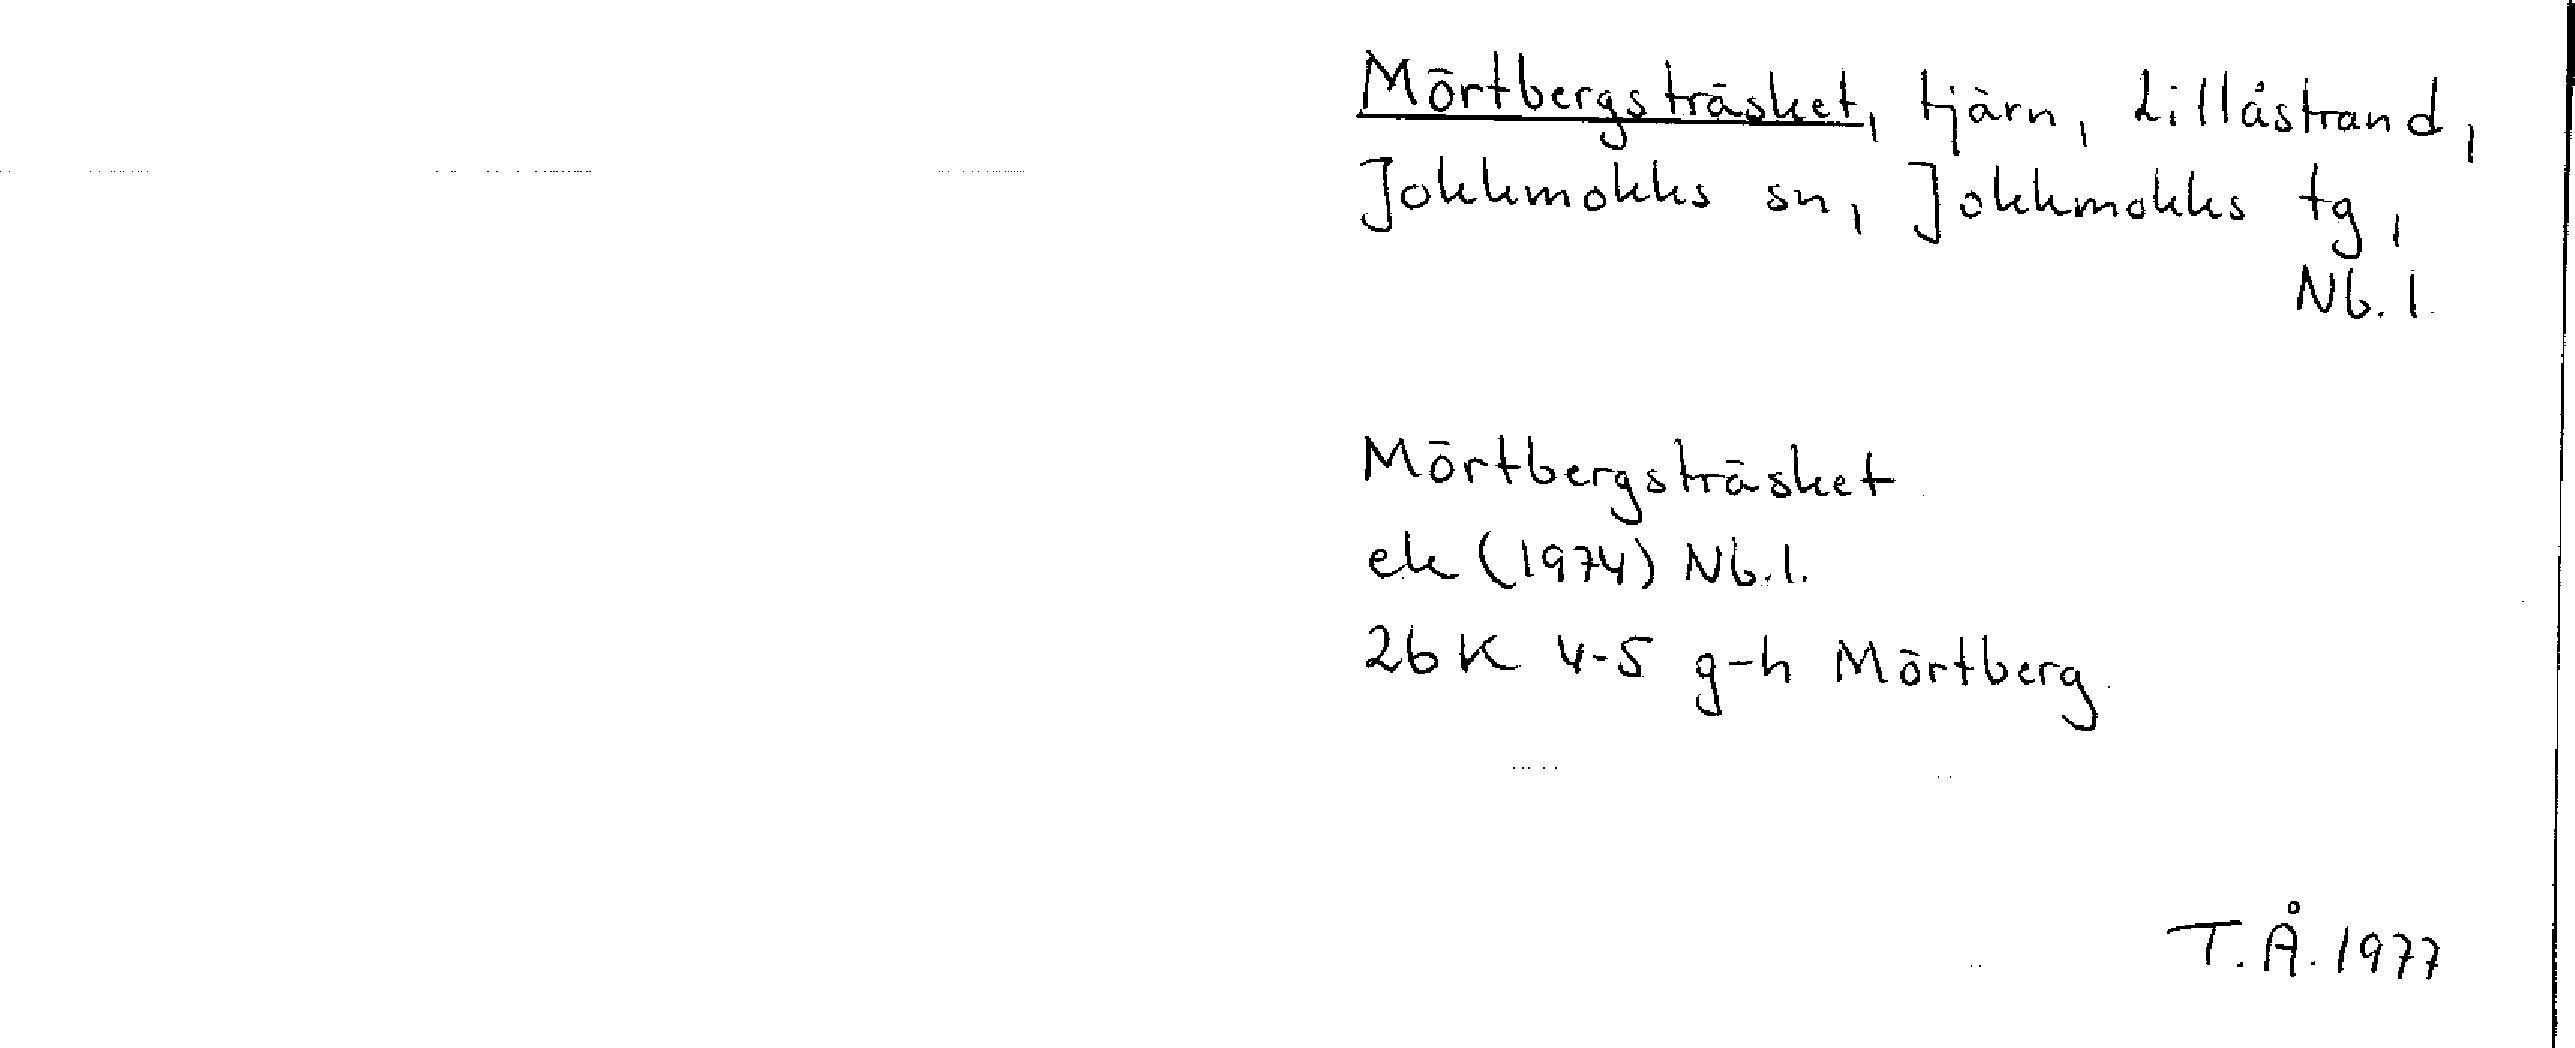 Mörtbergsträsket, tjärn, Lillåstrand,
Jokkmokks sn, Jokkmokks tg,
Nb. l.
Mörtbergsträsket
ek (1974) Nb. l.
26K 4-5 g-h Mörtberg
T. Å. 1977